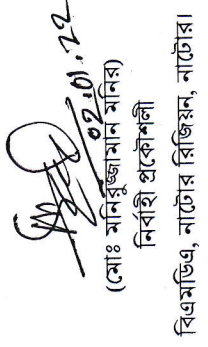 02.01.22
(মোঃ মনিরুজ্জামান মনির)
নির্বাহী প্রকৌশলী
বিএমডিএ, নাটোর রিজিয়ন, নাটোর।